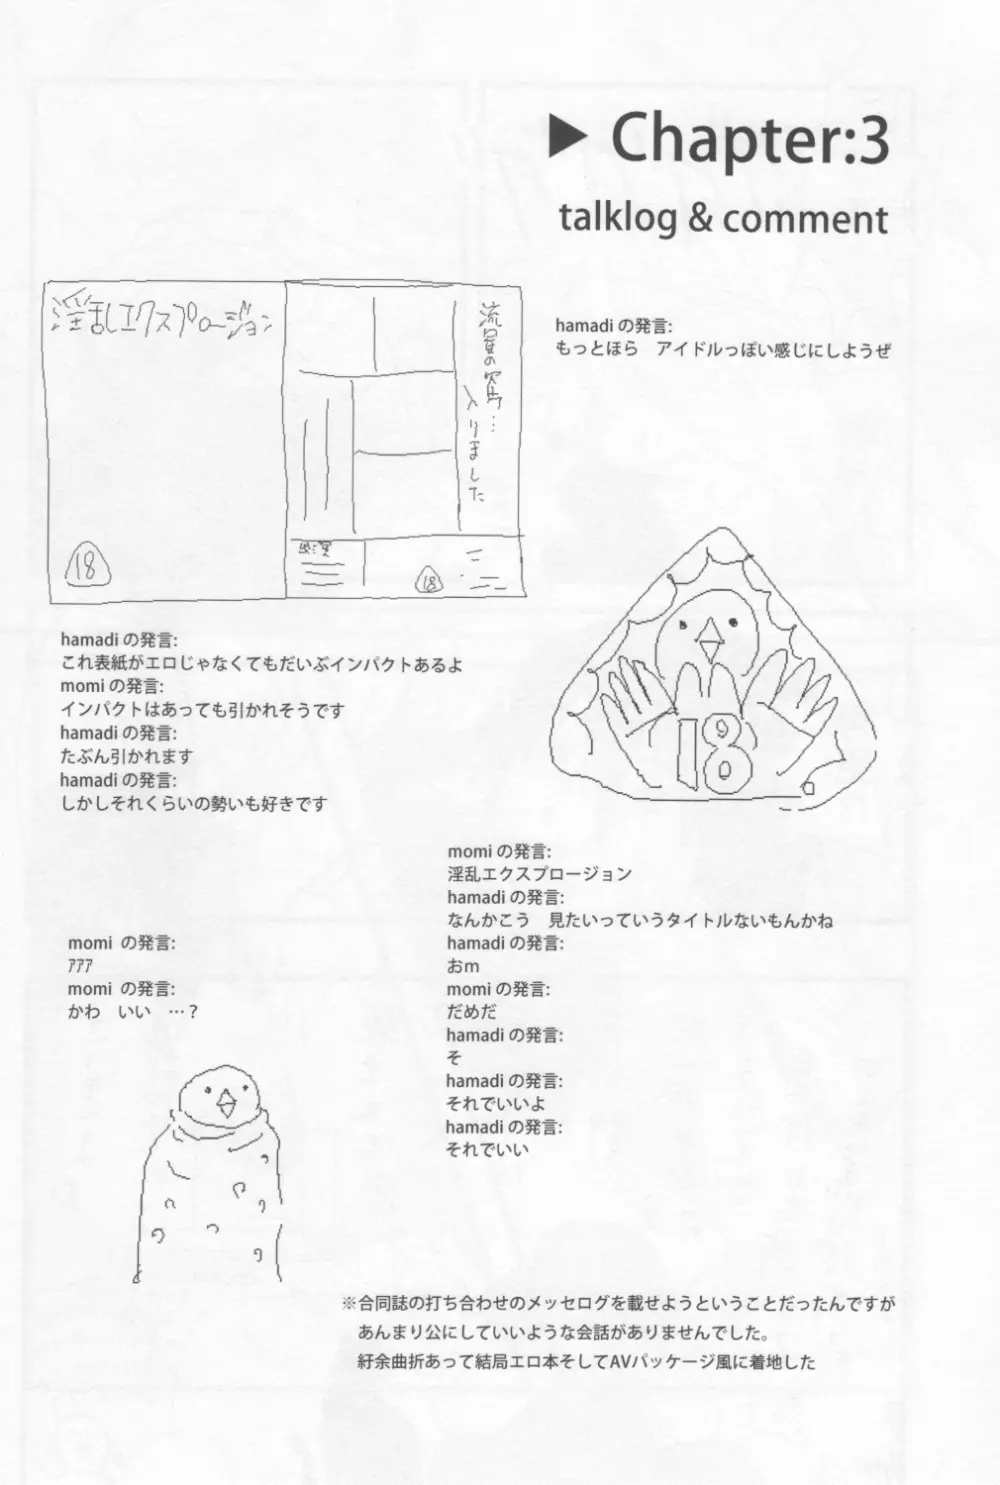 ▶ Chapter:3
talklog & comment
淫乱エクスプロージョン
入りました
18
18
hamadi の発言:
もっとほら　アイドルっぽい感じにしようぜ
hamadi の発言:
これ表紙がエロじゃなくてもだいぶインパクトあるよ
momi の発言:
インパクトはあっても引かれそうです
hamadi の発言:
たぶん引かれます
hamadi の発言:
しかしそれくらいの勢いも好きです
18
momi の発言:
淫乱エクスプロージョン
hamadi の発言:
なんかこう　見たいっていうタイトルないもんかね
hamadi の発言:
おm
momi の発言:
だめだ
hamadi の発言:
そ
hamadi の発言:
それでいいよ
hamadi の発言:
それでいい
momi の発言:
ｱｱｱ
momi の発言:
かわ　いい　…？
※合同誌の打ち合わせのメッセログを載せようということだったんですが
あんまり公にしていいような会話がありませんでした。
紆余曲折あって結局エロ本そしてAVパッケージ風に着地した